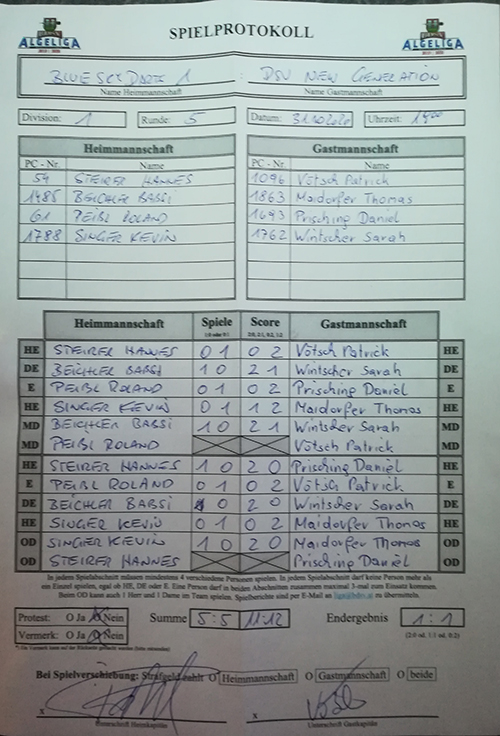 ALGELIGA SPIELPROTOKOLL ALGELIGA
BLUE SKY DARTS 1 : DSV NEW GENERATION
Name Heimmannschaft Name Gastmannschaft
Division: 1 Runde: 5 Datum: 31.10.2020 Uhrzeit: 14⁰⁰
Heimmannschaft Gastmannschaft
PC - Nr. Name PC - Nr. Name
54 STEIRER HANNES 1096 Vötsch Patrick
1485 BEICHLER BABSI 1863 Maidorfer Thomas
61 PEIBL ROLAND 1693 Prisching Daniel
1788 SINGER KEVIN 1762 Wintscher Sarah
Heimmannschaft Spiele Score Gastmannschaft
1:0 oder 0:1 2:0, 2:1, 0:2, 1:2
HE STEIRER HANNES 0 1 0 2 Vötsch Patrick HE
DE BEICHLER BABSI 1 0 2 1 Wintscher Sarah DE
E PEIBL ROLAND 0 1 0 2 Prisching Daniel E
HE SINGER KEVIN 0 1 1 2 Maidorfer Thomas HE
MD BEICHLER BABSI 1 0 2 1 Wintscher Sarah MD
MD PEIBL ROLAND Vötsch Patrick MD
HE STEIRER HANNES 1 0 2 0 Prisching Daniel HE
E PEIBL ROLAND 0 1 0 2 Vötsch Patrick E
DE BEICHLER BABSI 1 0 2 0 Wintscher Sarah DE
HE SINGER KEVIN 0 1 0 2 Maidorfer Thomas HE
OD SINGER KEVIN 1 0 2 0 Maidorfer Thomas OD
OD STEIRER HANNES Prisching Daniel OD
In jedem Spielabschnitt müssen mindestens 4 verschiedene Personen spielen. In jedem Spielabschnitt darf keine Person mehr als
ein Einzel spielen, egal ob HE, DE oder E. Eine Person darf in beiden Abschnitten zusammen maximal 3-mal zum Einsatz kommen.
Beim OD kann auch 1 Herr und 1 Dame im Team spielen. Spielberichte sind per E-Mail an zu übermitteln.
Protest: O Ja O Nein Summe 5:5 11:12 Endergebnis 1:1
Vermerk: O Ja O Nein (2:0 od. 1:1 od. 0:2)
Bei Spielverschiebung: Strafgeld zahlt O Heimmannschaft O Gastmannschaft O beide
x x
Unterschrift Heimkapitän Unterschrift Gastkapitän